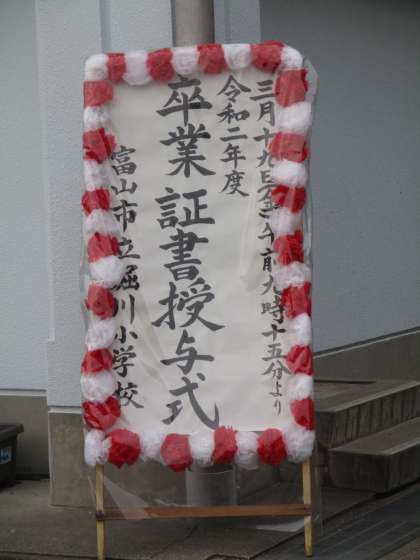 三月十九日(金)午前九時十五分より
令和二年度
卒業証書授与式
富山市立堀川小学校